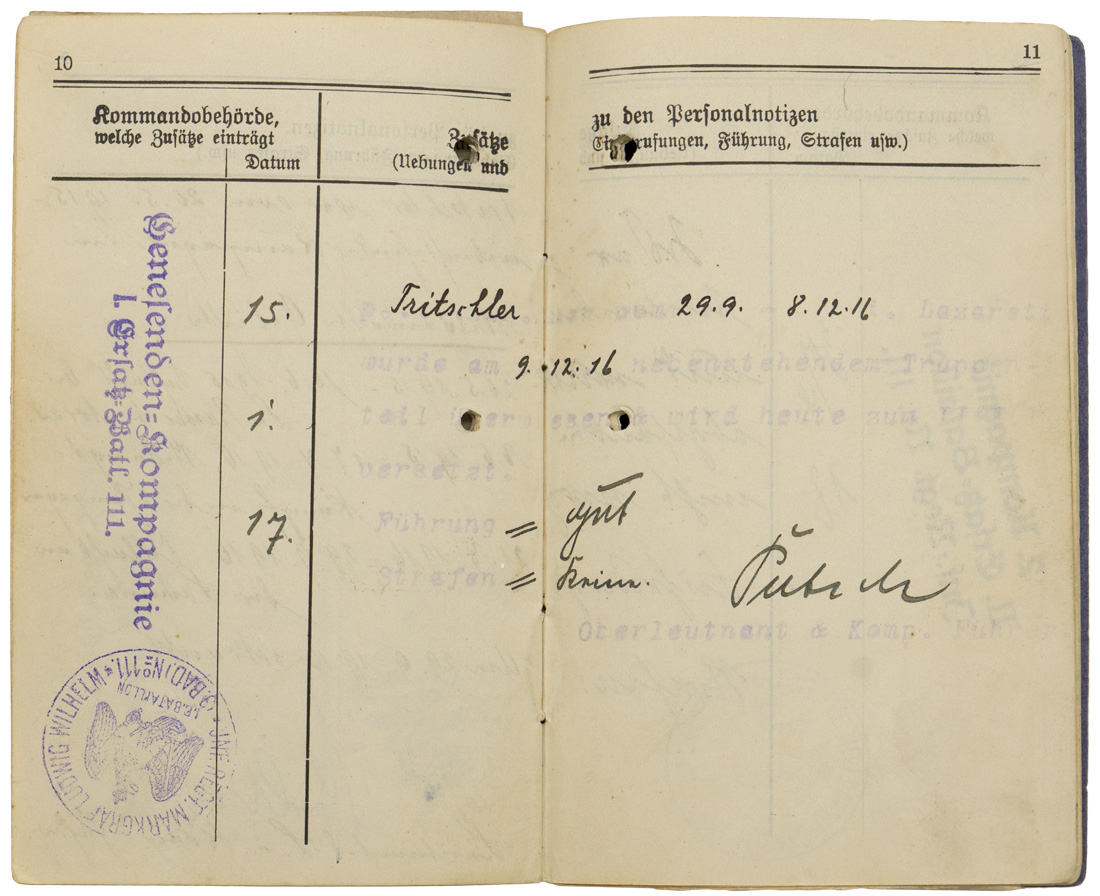 10
Kommandobehörde,
welche Zusätze einträgt
Datum
Zusätze
(Uebungen und
11
zu den Personalnotizen
Einberufungen, Führung, Strafen usw.)
Genesenden=Kompagnie
I. Ersatz=Batl. 111.
15.
1.
17.
Tritschler vom 29.9. – 8.12.16 Lazarett
wurde am 9.12.16 nebenstehendem Truppen-
teil überwiesen & wird heute zum
versetzt.
Führung = gut
Strafen = Keine.
Oberleutnant & Komp. Führer.
INF. REGT. MARKGRAF LUDWIG WILHELM * 3. BAD. No 111. *
I. E. BATAILLON